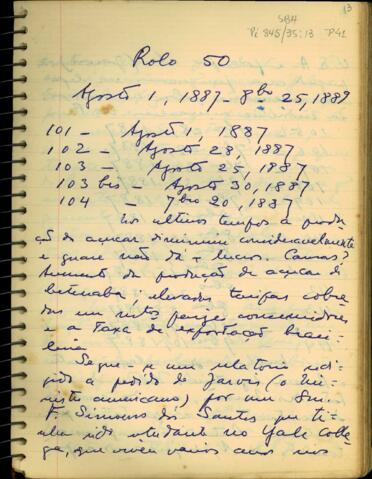 13
SBH
Pi 845/95:13 P41
Rolo 50
Agosto 1, 1887 - 8bro 25, 1889
101 - Agosto 1, 1887
102 - Agosto 28, 1887
103 - Agosto 25, 1887
103 bis - Agosto 30, 1887
104 - 7bro 20, 1887
Nos ultimos tempos a produ-
ção do açucar diminuiu consideravelmente
e quase não dá lucros. Causas?
Aumento da produção de açucar de
beterraba; elevadas tarifas cobra-
das em consumidores
e a Taxa de exportação brasi-
leira
Segue-se um relatorio redi-
gido a pedido de Jarvis (o Mi-
nistro americano) por um Snr.
F. Simmons dos Santos que ti-
nha sido estudante no Yale Colle-
ge, que viveu varios anos nos